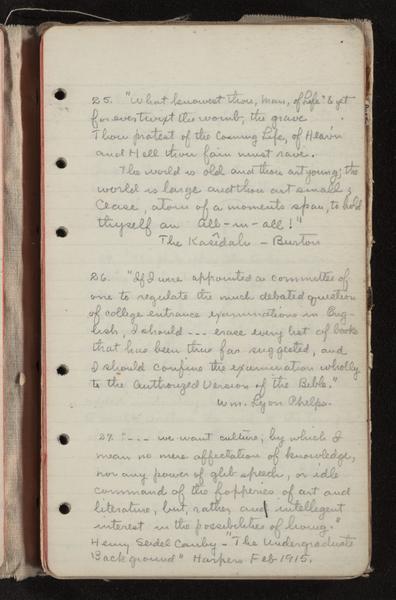 25. "What knowest thou, man, of Life? & yet
forever twixt the womb, the grave
Thou pratest of the Coming Life, of Heav'n
and Hell thou fain must rave.
The world is old and thou art young; the
world is large and thou art small;
Cease, atom of a moments span, to hold
thyself an All-in-all!"
The Kasîdah - Burton
26. "If I were appointed a committee of
one to regulate the much debated question
of college entrance examinations in Eng-
lish, I should --- erase every list of books
that has been thus far suggested, and
I should confine the examination wholly
to the Authorized Version of the Bible."
Wm. Lyon Phelps.
27. "--- we want culture, by which I
mean no mere affectation of knowledge,
nor any power of glib speech, or idle
command of the fopperies of art and
literature, but, rather an intellegent
interest in the possibilities of living."
Henry Seidel Canby - "The Undergraduate
Background" Harpers Feb 1915.